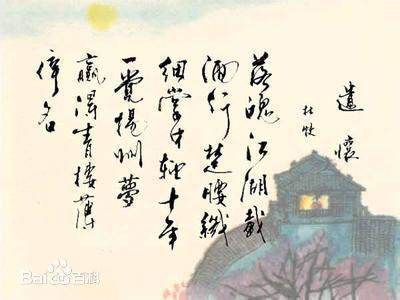 遣懷
杜牧
落魄江湖載
酒行楚腰纖
細掌中輕十年
一覺揚州夢
贏得青樓薄
倖名
Bai du 百科